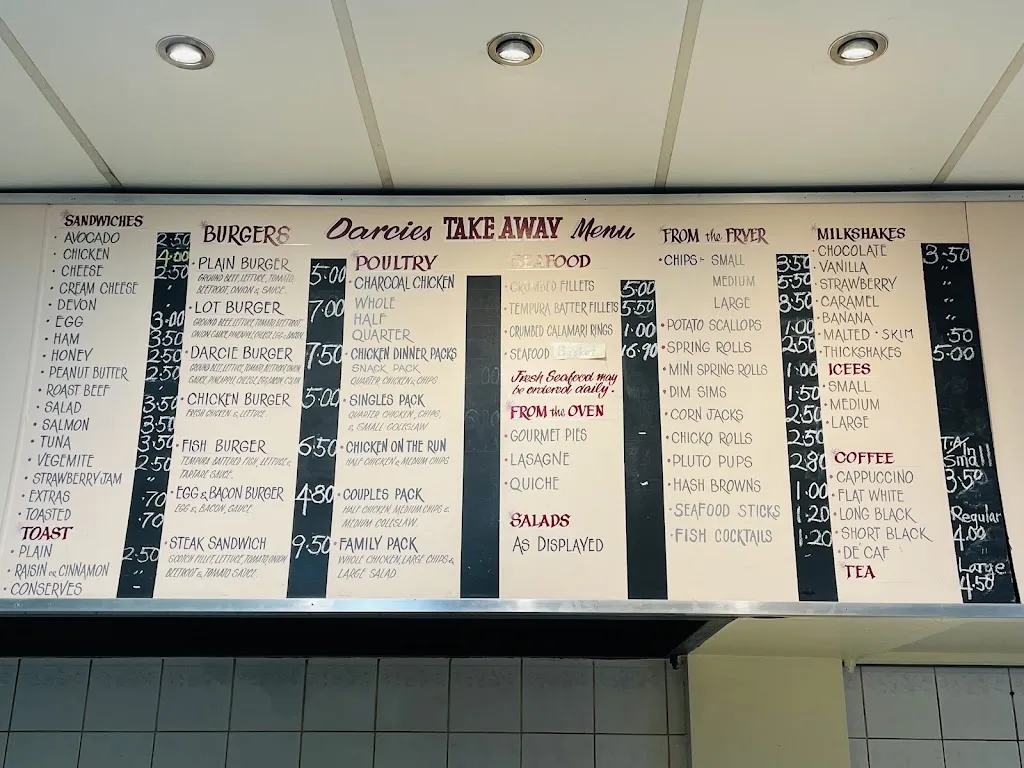 Darcies TAKE AWAY Menu
SANDWICHES
AVOCADO 2.50
CHICKEN 4.00
CHEESE 2.50
CREAM CHEESE "
DEVON "
EGG 3.00
HAM 3.50
HONEY 2.50
PEANUT BUTTER 2.50
ROAST BEEF "
SALAD 3.50
SALMON 3.50
TUNA 3.50
VEGEMITE 2.50
STRAWBERRY JAM "
EXTRAS .70
TOASTED .70
TOAST
PLAIN 2.50
RAISIN or CINNAMON "
CONSERVES "
BURGERS
PLAIN BURGER 5.00
GROUND BEEF, LETTUCE, TOMATO,
BEETROOT, ONION & SAUCE.
LOT BURGER 7.00
GROUND BEEF, LETTUCE, TOMATO, BEETROOT
ONION, SAUCE, PINEAPPLE, CHEESE, EGG & BACON
DARCIE BURGER 7.50
GROUND BEEF, LETTUCE, TOMATO, BEETROOT, ONION
SAUCE, PINEAPPLE, CHEESE, EGG, BACON
CHICKEN BURGER 5.00
FRESH CHICKEN & LETTUCE
FISH BURGER 6.50
TEMPURA BATTERED FISH, LETTUCE &
TARTARE SAUCE.
EGG & BACON BURGER 4.80
EGG & BACON, SAUCE
STEAK SANDWICH 9.50
SCOTCH FILLET, LETTUCE, TOMATO, ONION
BEETROOT & TOMATO SAUCE.
POULTRY
CHARCOAL CHICKEN
WHOLE
HALF
QUARTER
CHICKEN DINNER PACKS
SNACK PACK
QUARTER CHICKEN & CHIPS
SINGLES PACK
QUARTER CHICKEN, CHIPS,
& SMALL COLESLAW
CHICKEN ON THE RUN
HALF CHICKEN & MEDIUM CHIPS
COUPLES PACK
HALF CHICKEN, MEDIUM CHIPS &
MEDIUM COLESLAW.
FAMILY PACK
WHOLE CHICKEN, LARGE CHIPS &
LARGE SALAD
SEAFOOD
CRUMBED FILLETS 5.00
TEMPURA BATTER FILLETS 5.50
CRUMBED CALAMARI RINGS 1.00
SEAFOOD Basket 16.90
Fresh Seafood may
be ordered daily.
FROM the OVEN
GOURMET PIES
LASAGNE
QUICHE
SALADS
AS DISPLAYED
FROM the FRYER
CHIPS - SMALL 3.50
MEDIUM 5.50
LARGE 8.50
POTATO SCALLOPS 1.00
SPRING ROLLS 2.50
MINI SPRING ROLLS 1.00
DIM SIMS 1.50
CORN JACKS 2.50
CHICKO ROLLS 2.50
PLUTO PUPS 2.80
HASH BROWNS 1.00
SEAFOOD STICKS 1.20
FISH COCKTAILS 1.20
MILKSHAKES
CHOCOLATE 3.50
VANILLA "
STRAWBERRY "
CARAMEL "
BANANA "
MALTED · SKIM .50
THICKSHAKES 5.00
ICEES
SMALL
MEDIUM
LARGE
COFFEE
CAPPUCCINO
FLAT WHITE
LONG BLACK
SHORT BLACK
DE' CAF
TEA
Small
3.50
Regular
4.00
Large
4.50